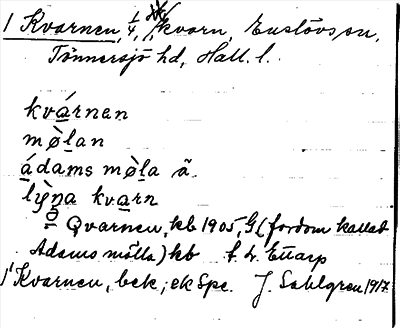 1 Kvarnen, 1/4, kvarn, Enslövs sn,
Tönnersjö hd, Hall. l.
kvárnen
mø̀lan
ádams mø̀la
lỳŋa kvarn
Qvarnen, kb 1905, G (fordom kallad
Adams mölla) kb f. L. Ettarp
1 Kvarnen, bek; ek Spe. J. Sahlgren 1917.